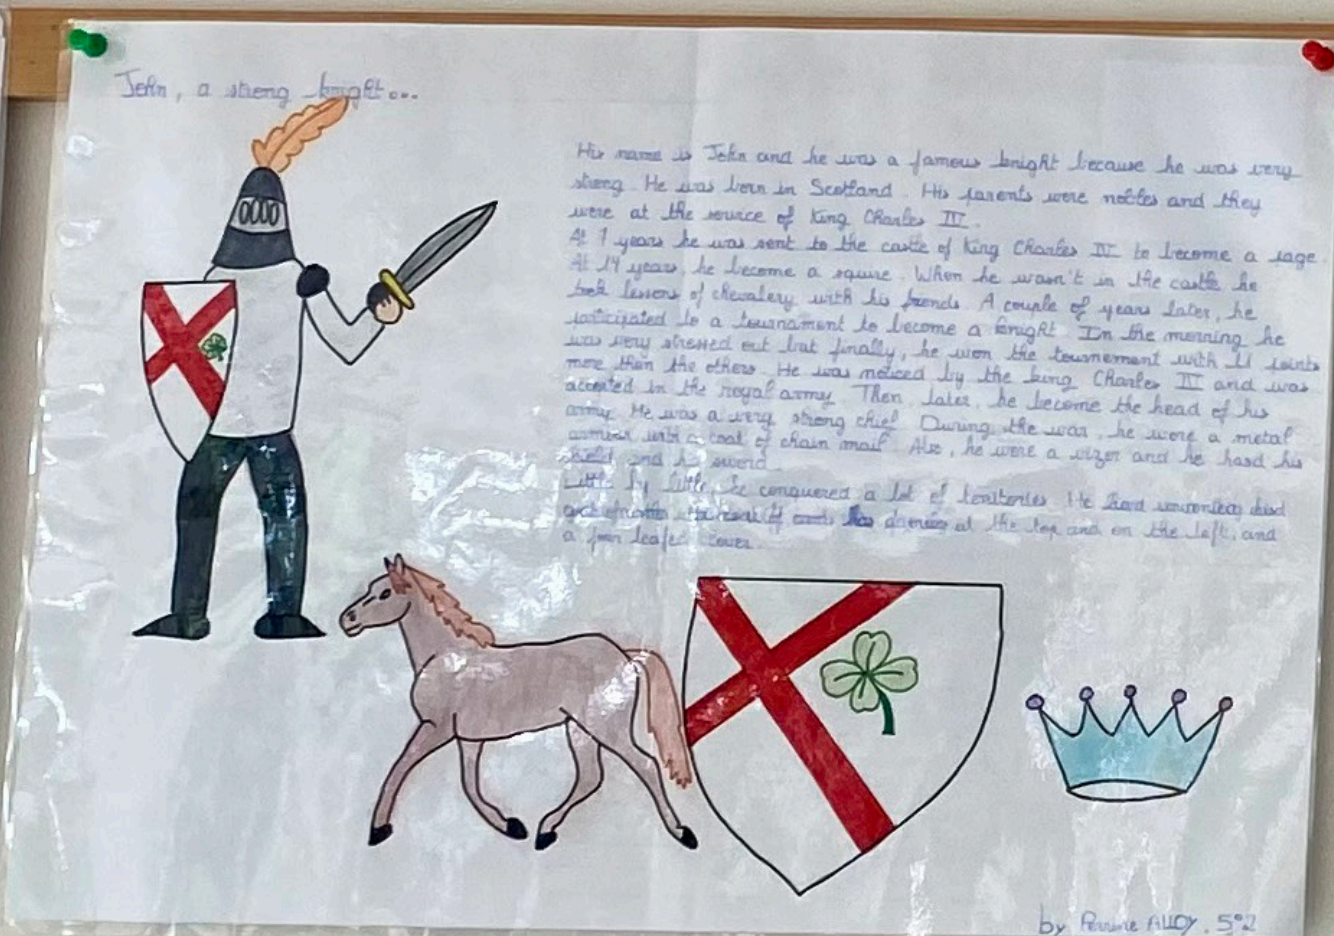 John, a strong knight...
His name is John and he was a famous knight because he was very
strong. He was born in Scotland. His parents were nobles and they
were at the service of King Charles IV.
At 7 years he was sent to the castle of King Charles IV to become a page.
At 14 years, he become a squire. When he wasn't in the castle he
took lessons of chevalery with his friends. A couple of years later, he
participated to a tournament to become a knight. In the morning he
was very stressed out but finally, he won the tournement with 11 points
more than the others. He was noticed by the king Charles IV and was
accepted in the royal army. Then, later, he become the head of his
army. He was a very strong chief. During the war, he wore a metal
armour with a coat of chain mail. Also, he wore a vizer and he hard his
shield and his sword.
Little by little, he conquered a lot of territories. He
at the top and on the left, and
a four leafed clover.
by Perrine ALLOY. 5°2